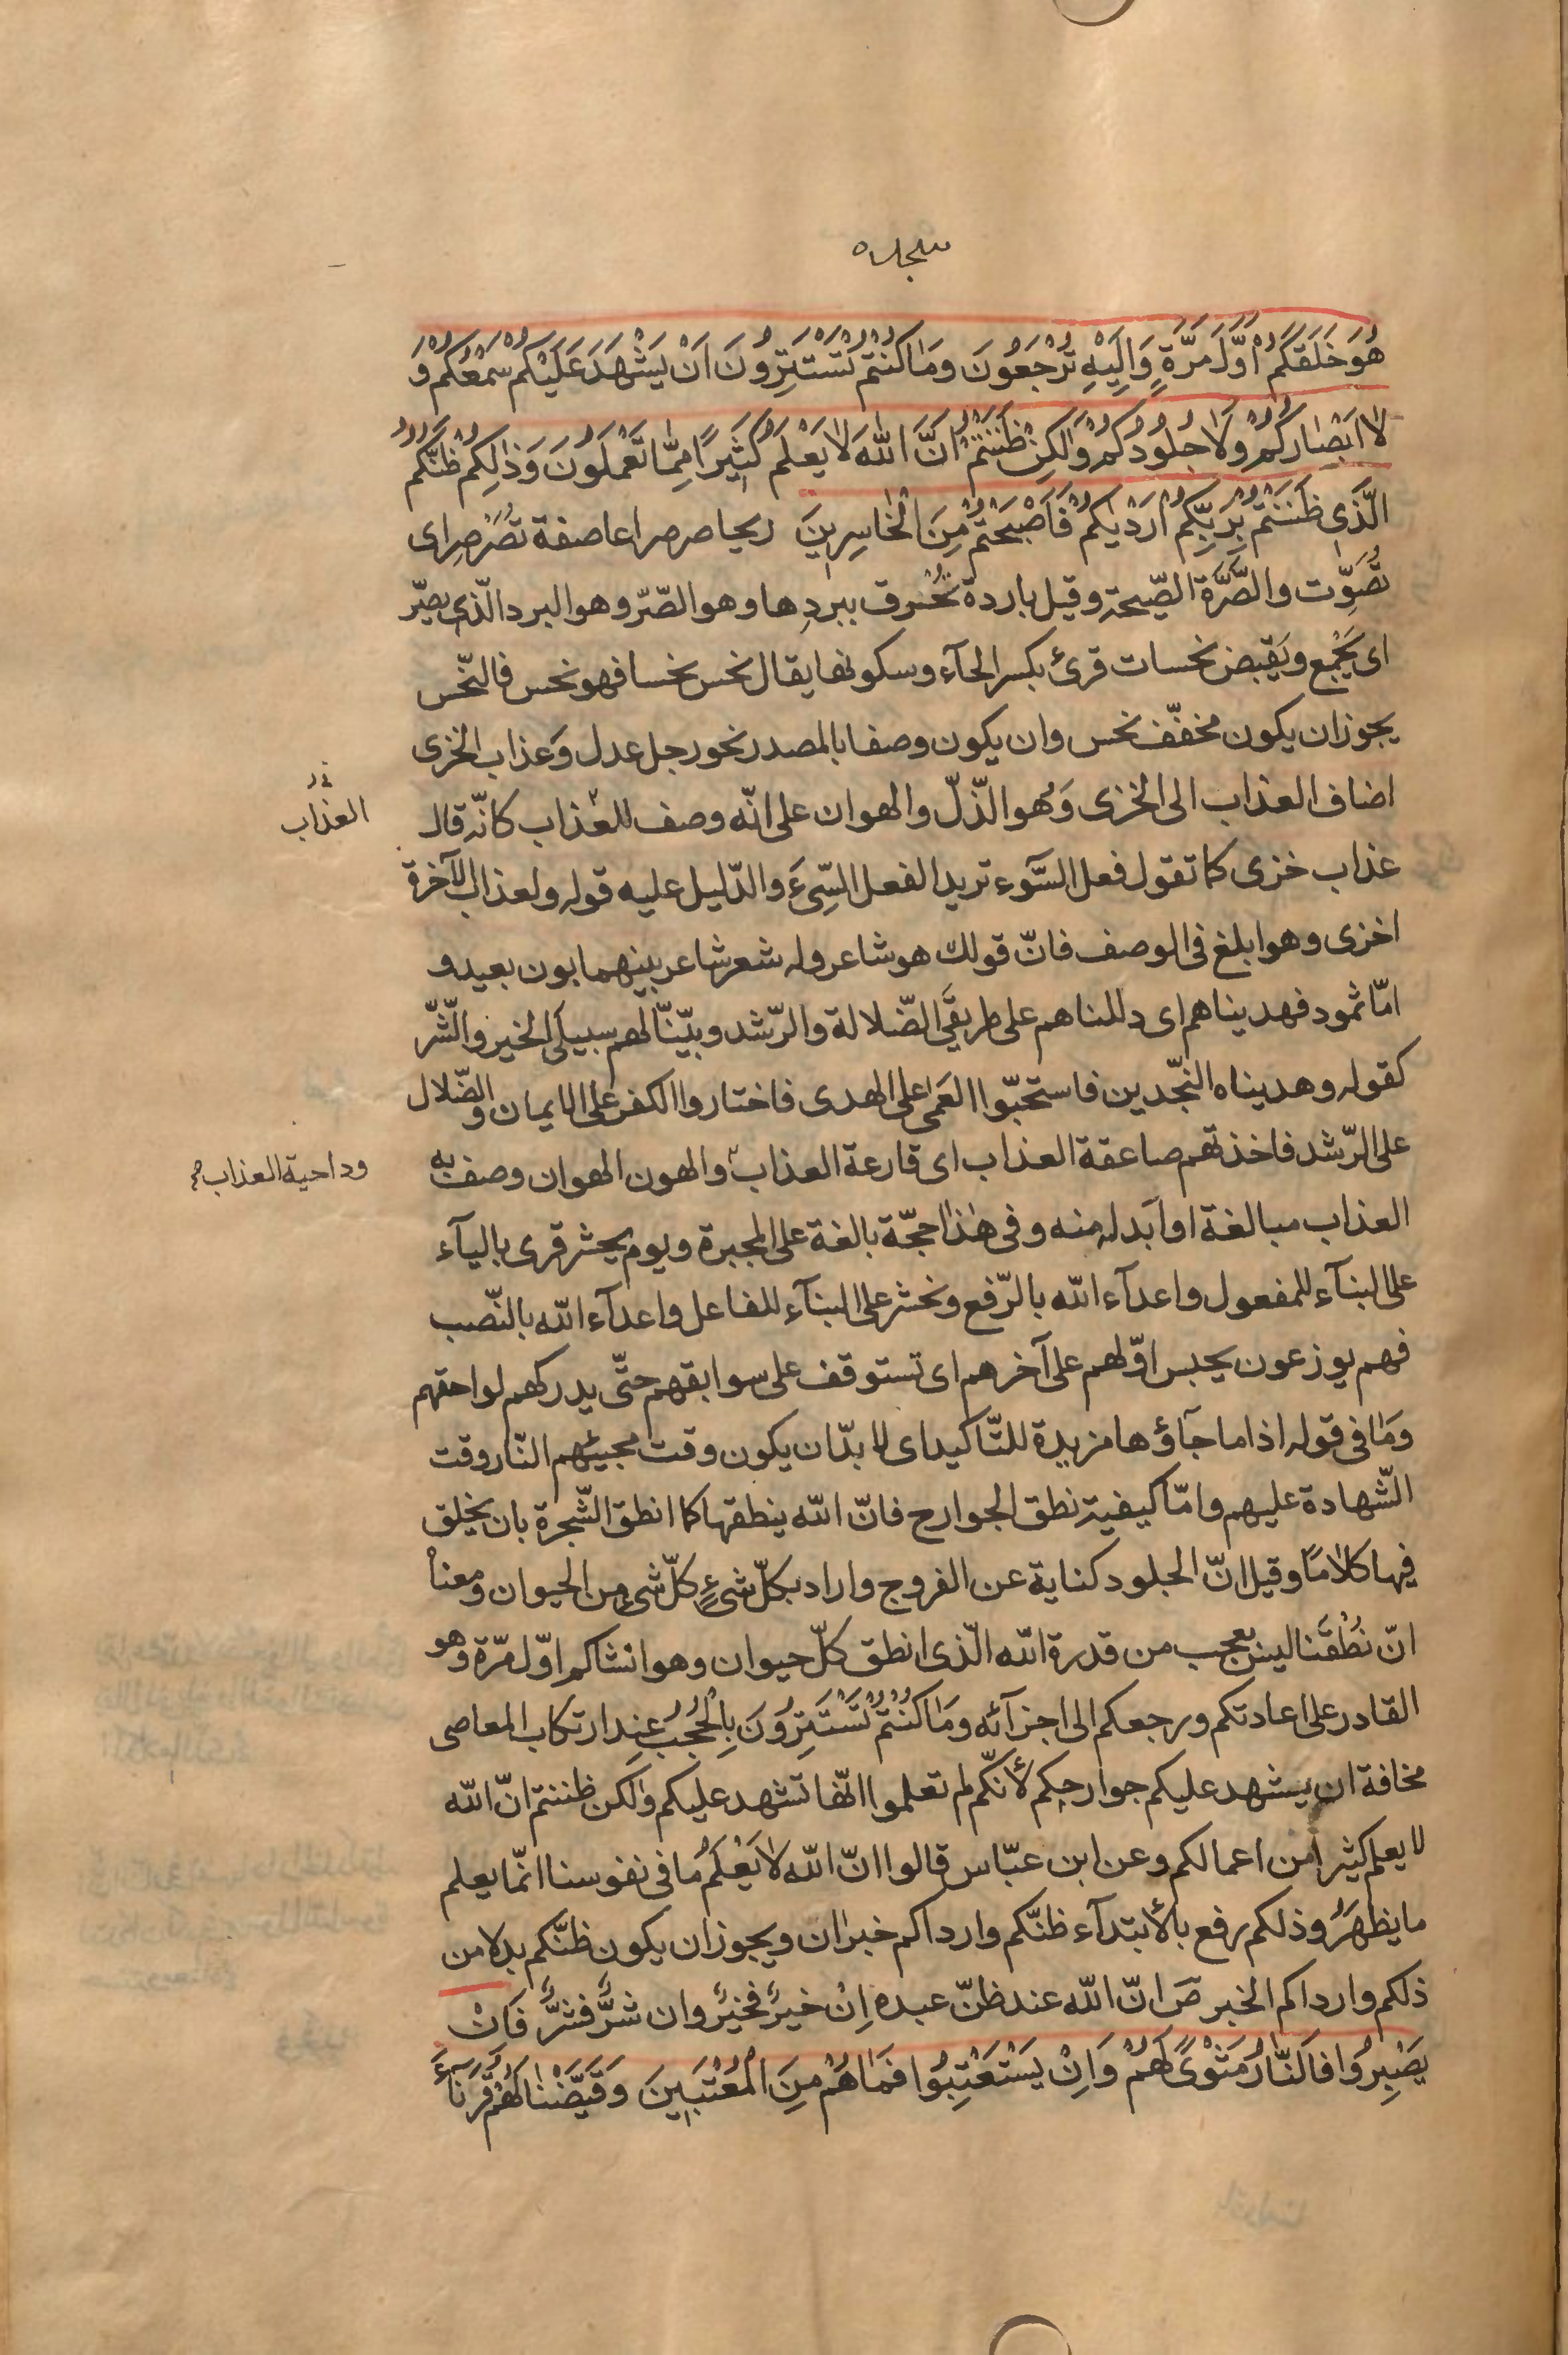 سجده
هُوَ خَلَقَكُمْ اَوَّلَ مَرَّةٍ وَاِلَيْهِ تُرْجَعُونَ وَمَا كُنْتُمْ تَسْتَتِرُونَ اَنْ يَشْهَدَ عَلَيْكُمْ سَمْعُكُمْ وَ
لَا اَبْصَارُكُمْ وَلَا جُلُودُكُمْ وَلٰكِنْ ظَنَنْتُمْ اَنَّ اللّٰهَ لَا يَعْلَمُ كَثِيرًا مِمَّا تَعْمَلُونَ وَذٰلِكُمْ ظَنُّكُمُ
الَّذِى ظَنَنْتُمْ بِرَبِّكُمْ اَرْدٰيكُمْ فَاَصْبَحْتُمْ مِنَ الْخَاسِرِينَ ريحا صرصرا عاصفة تُصَرْصِر اى
تُصَوِّت والصَّرَّة الصّيحة وقيل باردة تُحْرق ببردِها وهو الصّرّ وهو البرد الّذى يصِرّ
اى يَجْمع ويَقبِض نحسات قرئ بكسر الحآء وسكونها يقال نحس نحسا فهو نحس فالنّحس
يجوز ان يكون مخفّف نحس وان يكون وصفا بالمصدر نحو رجل عدل وَعذاب الخزى
اضاف العذاب الى الخزى وَهو الذّلّ والهوان على انّه وصف للعذاب كانّه قال
العذاب
عذاب خزى كما تقول فعل السّوء تريد الفعل السّيّئَ والدّليل عليه قوله ولعذاب الآخرة
اخزى وهو ابلغ فى الوصف فانّ قولك هو شاعر وله شعر شاعر بينهما بون بعيد و
امّا ثمود فهديناهم اى دللناهم على طريقَىِ الضّلالة والرّشد وبيّنّا لهم سبيلَىِ الخير والشّرّ
كقوله وهديناه النّجدين فاستحبّوا العَمى على الهدى فاختاروا الكفر على الايمان والضّلال
على الرّشد فاخذتهم صاعقة العذاب اى قارعة العذاب والهون الهوان وصف به
وداحية العذاب صح
العذاب مبالغة او ابدله منه وفى هٰذا حجّة بالغة على المجبرة ويوم يحشر قرى باليآء
على البنآء للمفعول واعدآء الله بالرّفع ونحشر على البنآء للفاعل واعدآء الله بالنّصب
فهم يوزعون يحبس اوّلهم على آخرهم اى تستوقف على سوابقهم حتّى يدركهم لواحقهم
وَما فى قوله اذا ما جآؤها مزيدة للتّاكيد اى لا بدّ ان يكون وقت مجيئهم النّار وقت
الشّهادة عليهم وامّا كيفية نطق الجوارح فانّ الله ينطقها كما انطق الشّجرة بان يخلق
فيها كلامًا وقيل انّ الجلود كناية عن الفروج واراد بكلّ شىءٍ كلّ شىء من الحيوان ومعناه
انّ نُطْقَنا ليس بعجب من قدرة الله الّذى انطق كلّ حيوان وهو انشاكم اوّل مرّة وهو
القادر على اعادتكم ورجعكم الى اجزآئه وَمَا كُنْتُمْ تَسْتَتِرُونَ بِالْحُجُبِ عند ارتكاب المعاصى
مخافة ان يشهد عليكم جوارحكم لأنّكم لم تعلموا انّها تشهد عليكم ولٰكن ظننتم انّ الله
لا يعلم كثيرا من اعمالكم وعن ابن عبّاس قالوا انّ الله لَا يَعْلَمُ ما فى نفوسنا انّما يعلم
ما يظهَرُ وذلكم رفع بالأبتدآء ظنّكم وارداكم خبران ويجوز ان يكون ظنّكم بدلا من
ذلكم وارداكم الخبر صَ انّ الله عند ظنّ عبده اِنْ خيرٌ فخيرٌ وان شرٌّ فشرٌّ فَاِنْ
يَصْبِرُوا فَالنَّارُ مَثْوًى لَهُمْ وَاِنْ يَسْتَعْتِبُوا فَمَا هُمْ مِنَ الْمُعْتَبِينَ وَقَيَّضْنَا لَهُمْ قُرَنَآءَ